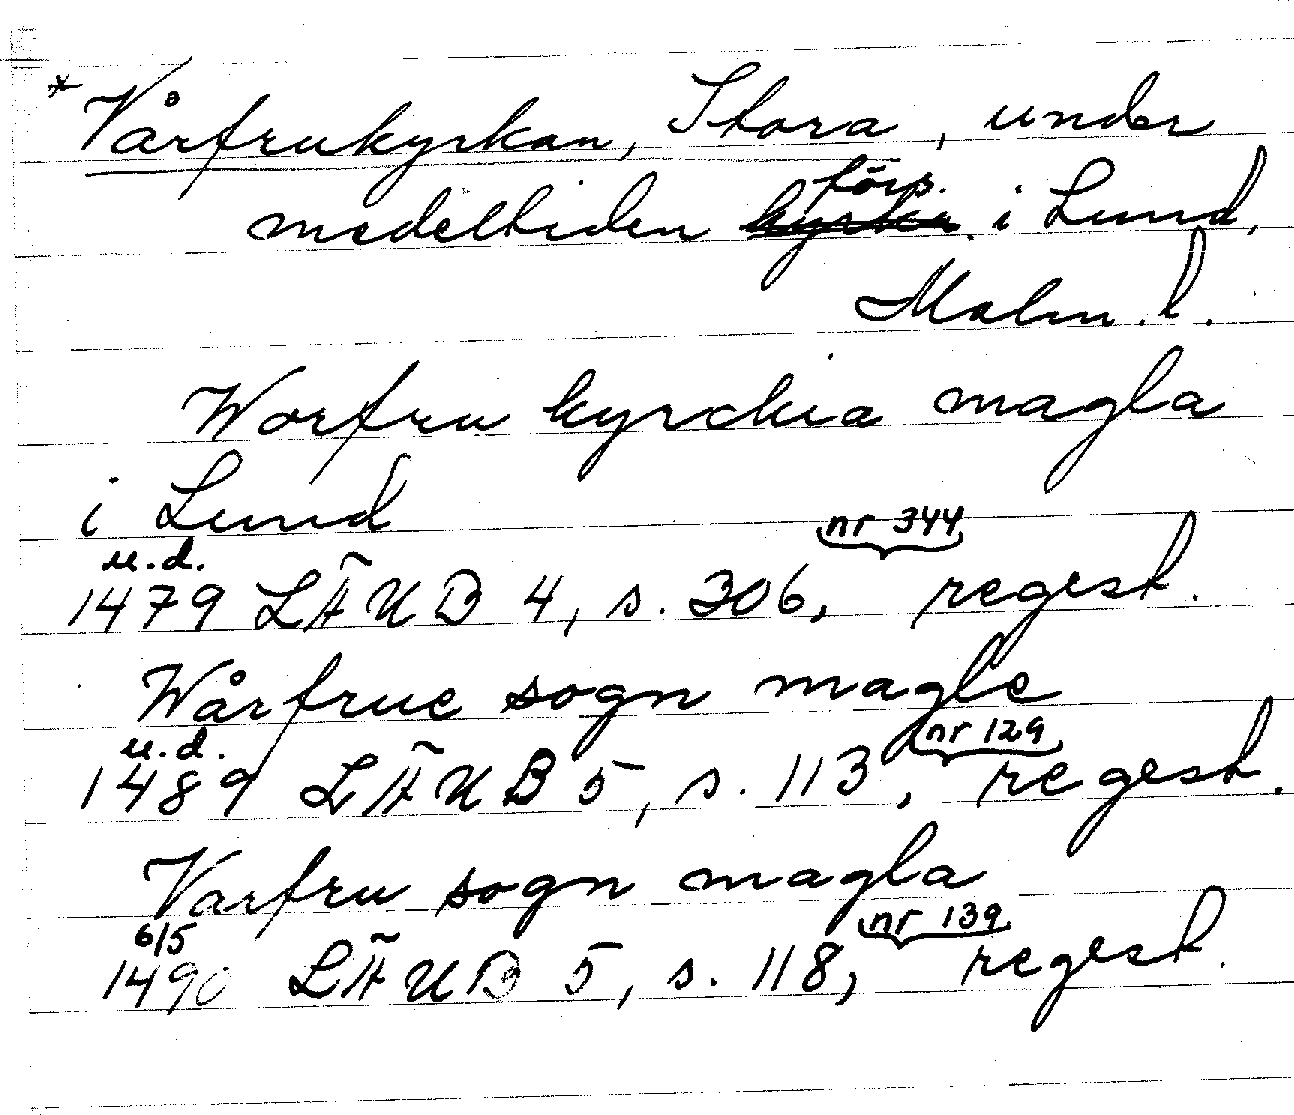 * Vårfrukyrkan, Stora, under
förs.
medeltiden kyrka i Lund,
Malm. l.
Worfru kyrckia magla
i Lund
u.d. nr 344
1479 LÄUB 4, s. 306, regest.
Wårfrue sogn magle
u.d. nr 129
1489 LÄUB 5, s. 113, regest.
Varfru sogn magla
6/5 nr 139
1490 LÄUB 5, s. 118, regest.